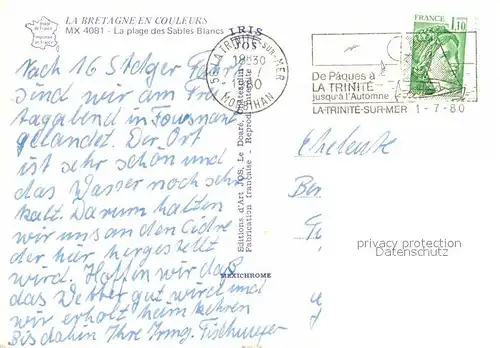 LA BRETAGNE EN COULEURS
MX 4081 - La plage des Sables Blancs
IRIS
JOS
56 LA TRINITÉ-SUR-MER
18H30
MORBIHAN
FRANCE
1,10
De Pâques à
LA TRINITÉ
jusqu'à l'Automne
LA-TRINITE-SUR-MER 1-7-80
Editions d'Art JOS, Le Doaré,
Fabrication française - Reproduction
MEXICHROME
Nach 16 Stdger
sind wir am Frei
tagabend in Fouesnant
gelandet. Der Ort
ist sehr schön und
das Wasser noch sehr
kalt. Darum halten
wir uns an den Cidre
der hier hergestellt
wird. Hoffen wir daß
das Wetter gut wird und
wir erholt heim kehren
Bis dahin Ihre Irmg.
privacy protection
Datenschutz